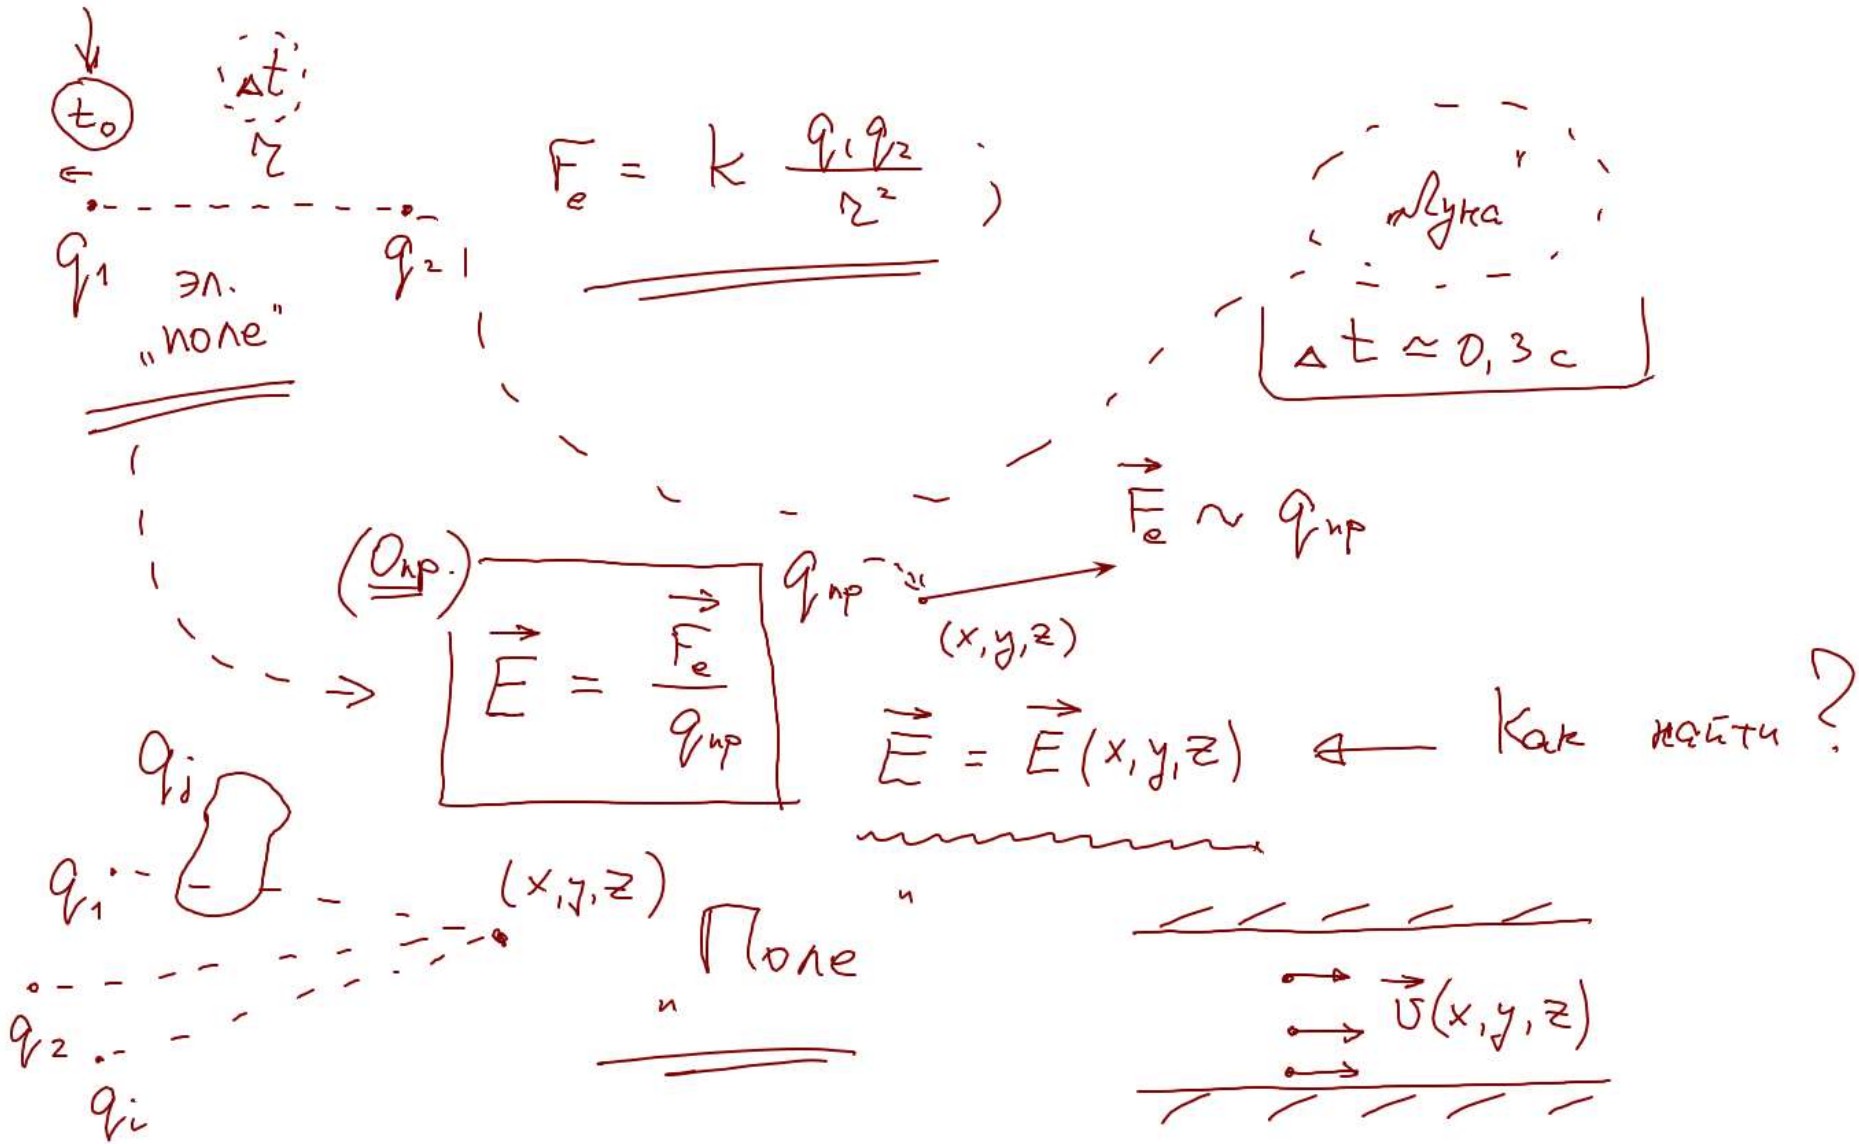 t₀
Δt
r
q₁ q₂
эл.
„поле“
Fₑ = k q₁q₂ / r² ;
Луна
Δt ≃ 0,3 с
(Опр.)
E⃗ = F⃗ₑ / qпр
qпр
(x,y,z)
F⃗ₑ ~ qпр
E⃗ = E⃗(x,y,z) ← Как найти?
qⱼ
q₁
q₂
qᵢ
(x,y,z)
„Поле“
v⃗(x,y,z)